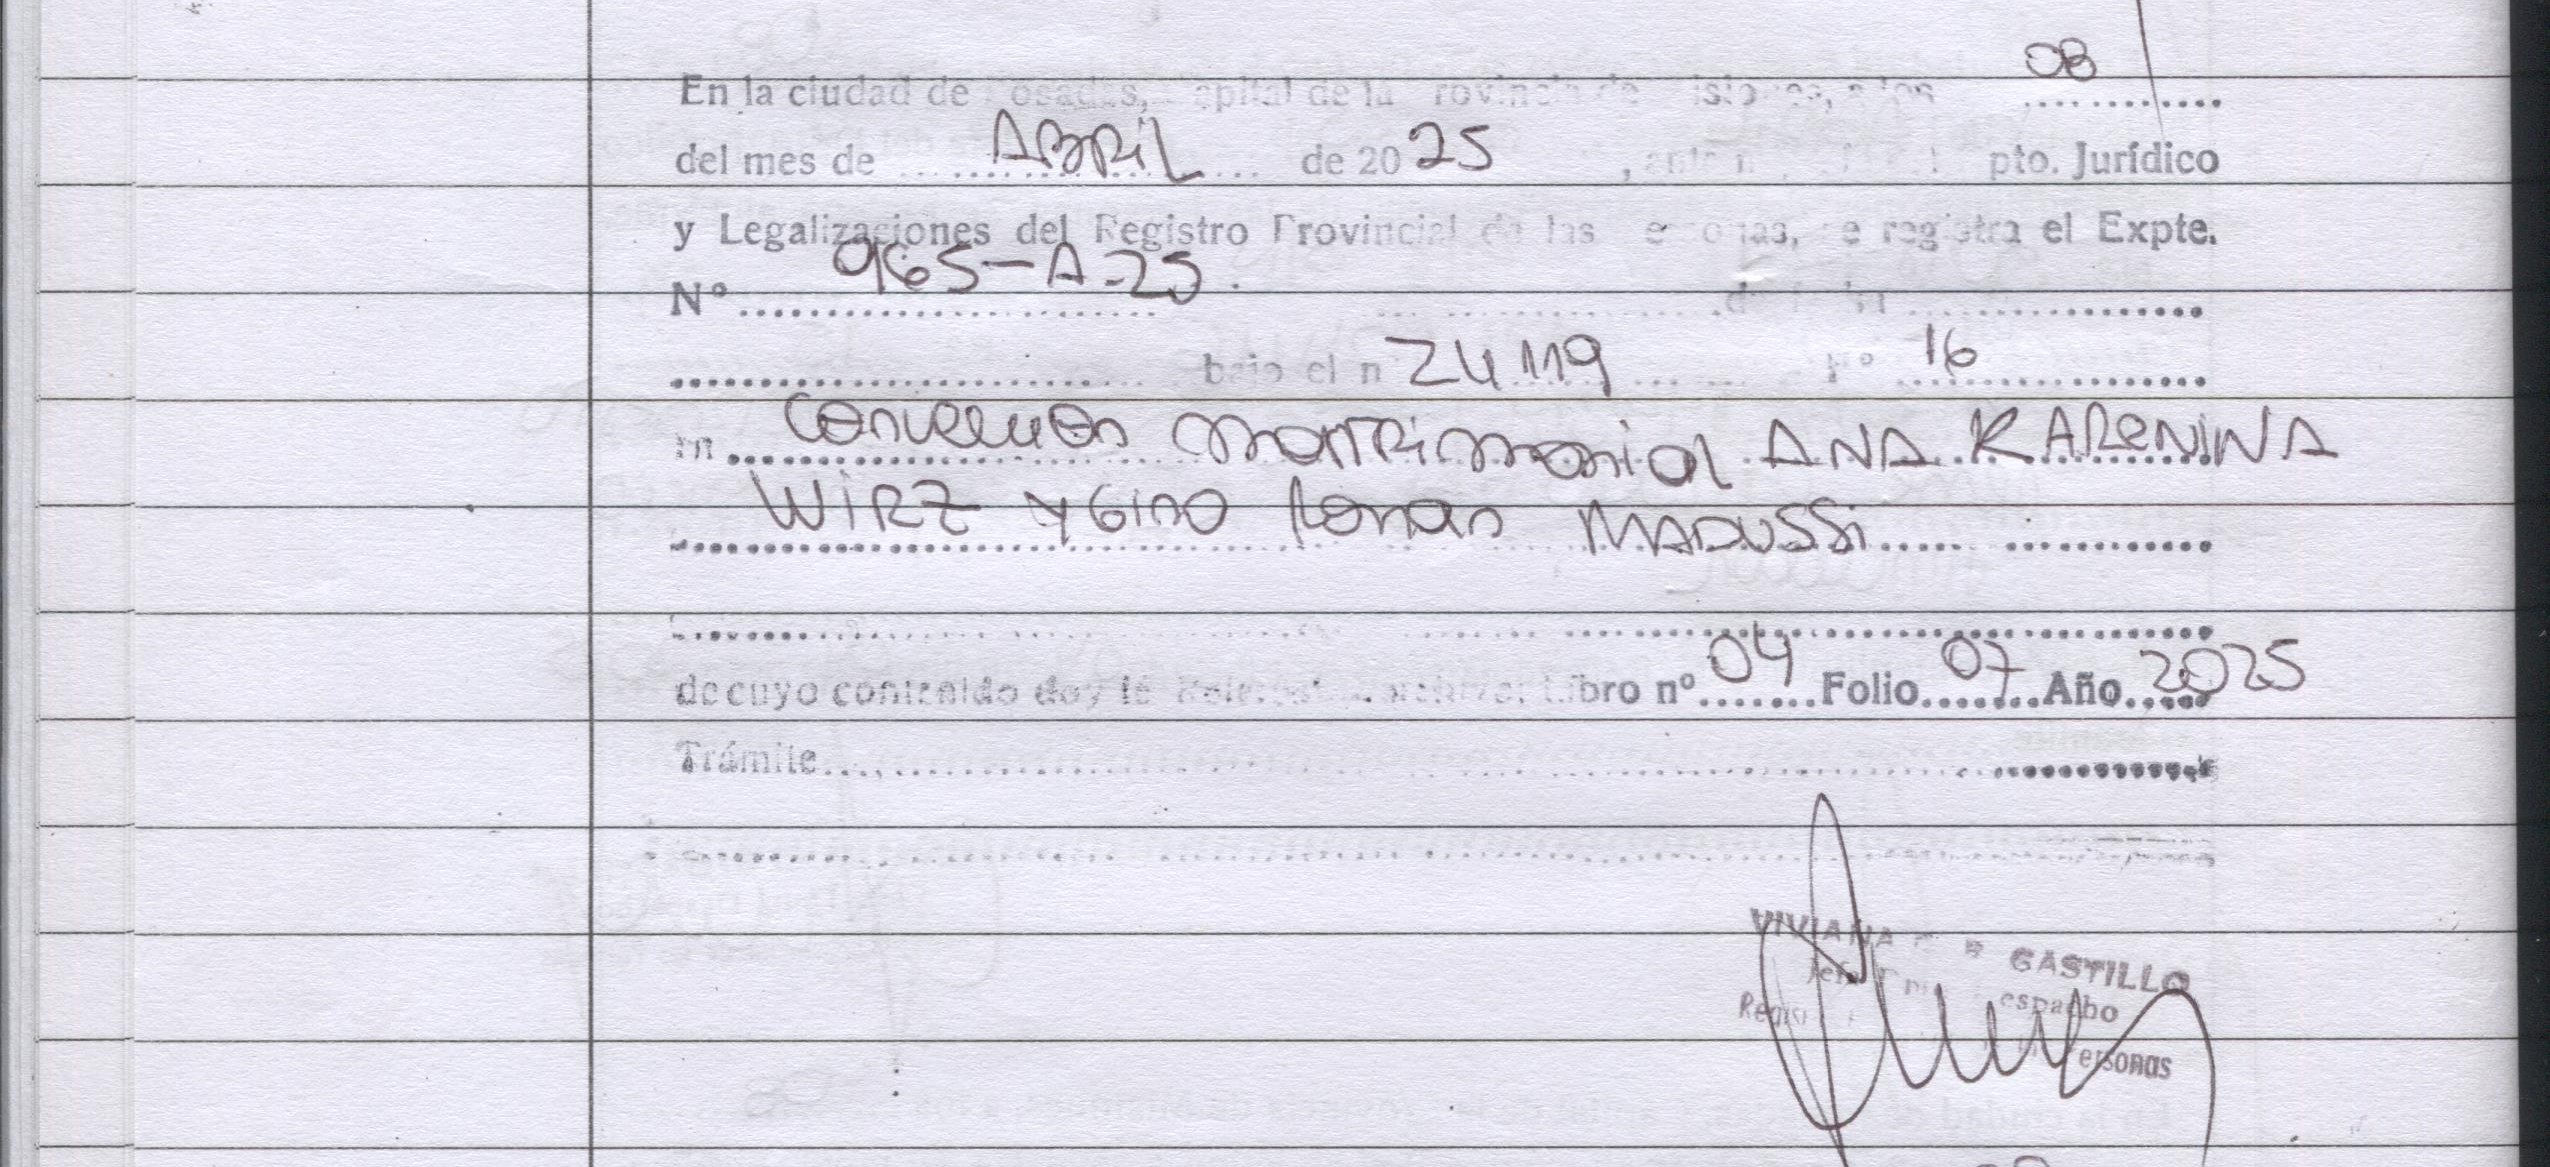 08
En la ciudad de Posadas, Capital de la Provincia de Misiones, a los ............
del mes de ABRIL de 2025, ante m pto. Jurídico
y Legalizaciones del Registro Provincial de las Personas, se registra el Expte.
Nº 965-A-25.
bajo el n 24119 Nº 16
matrimonial ANA KARENINA
WIRZ y Gino MADUSSi
de cuyo contenido doy fé Libro nº 04 Folio 07 Año 2025
Trámite
VIVIANA CASTILLO
Despacho
Personas